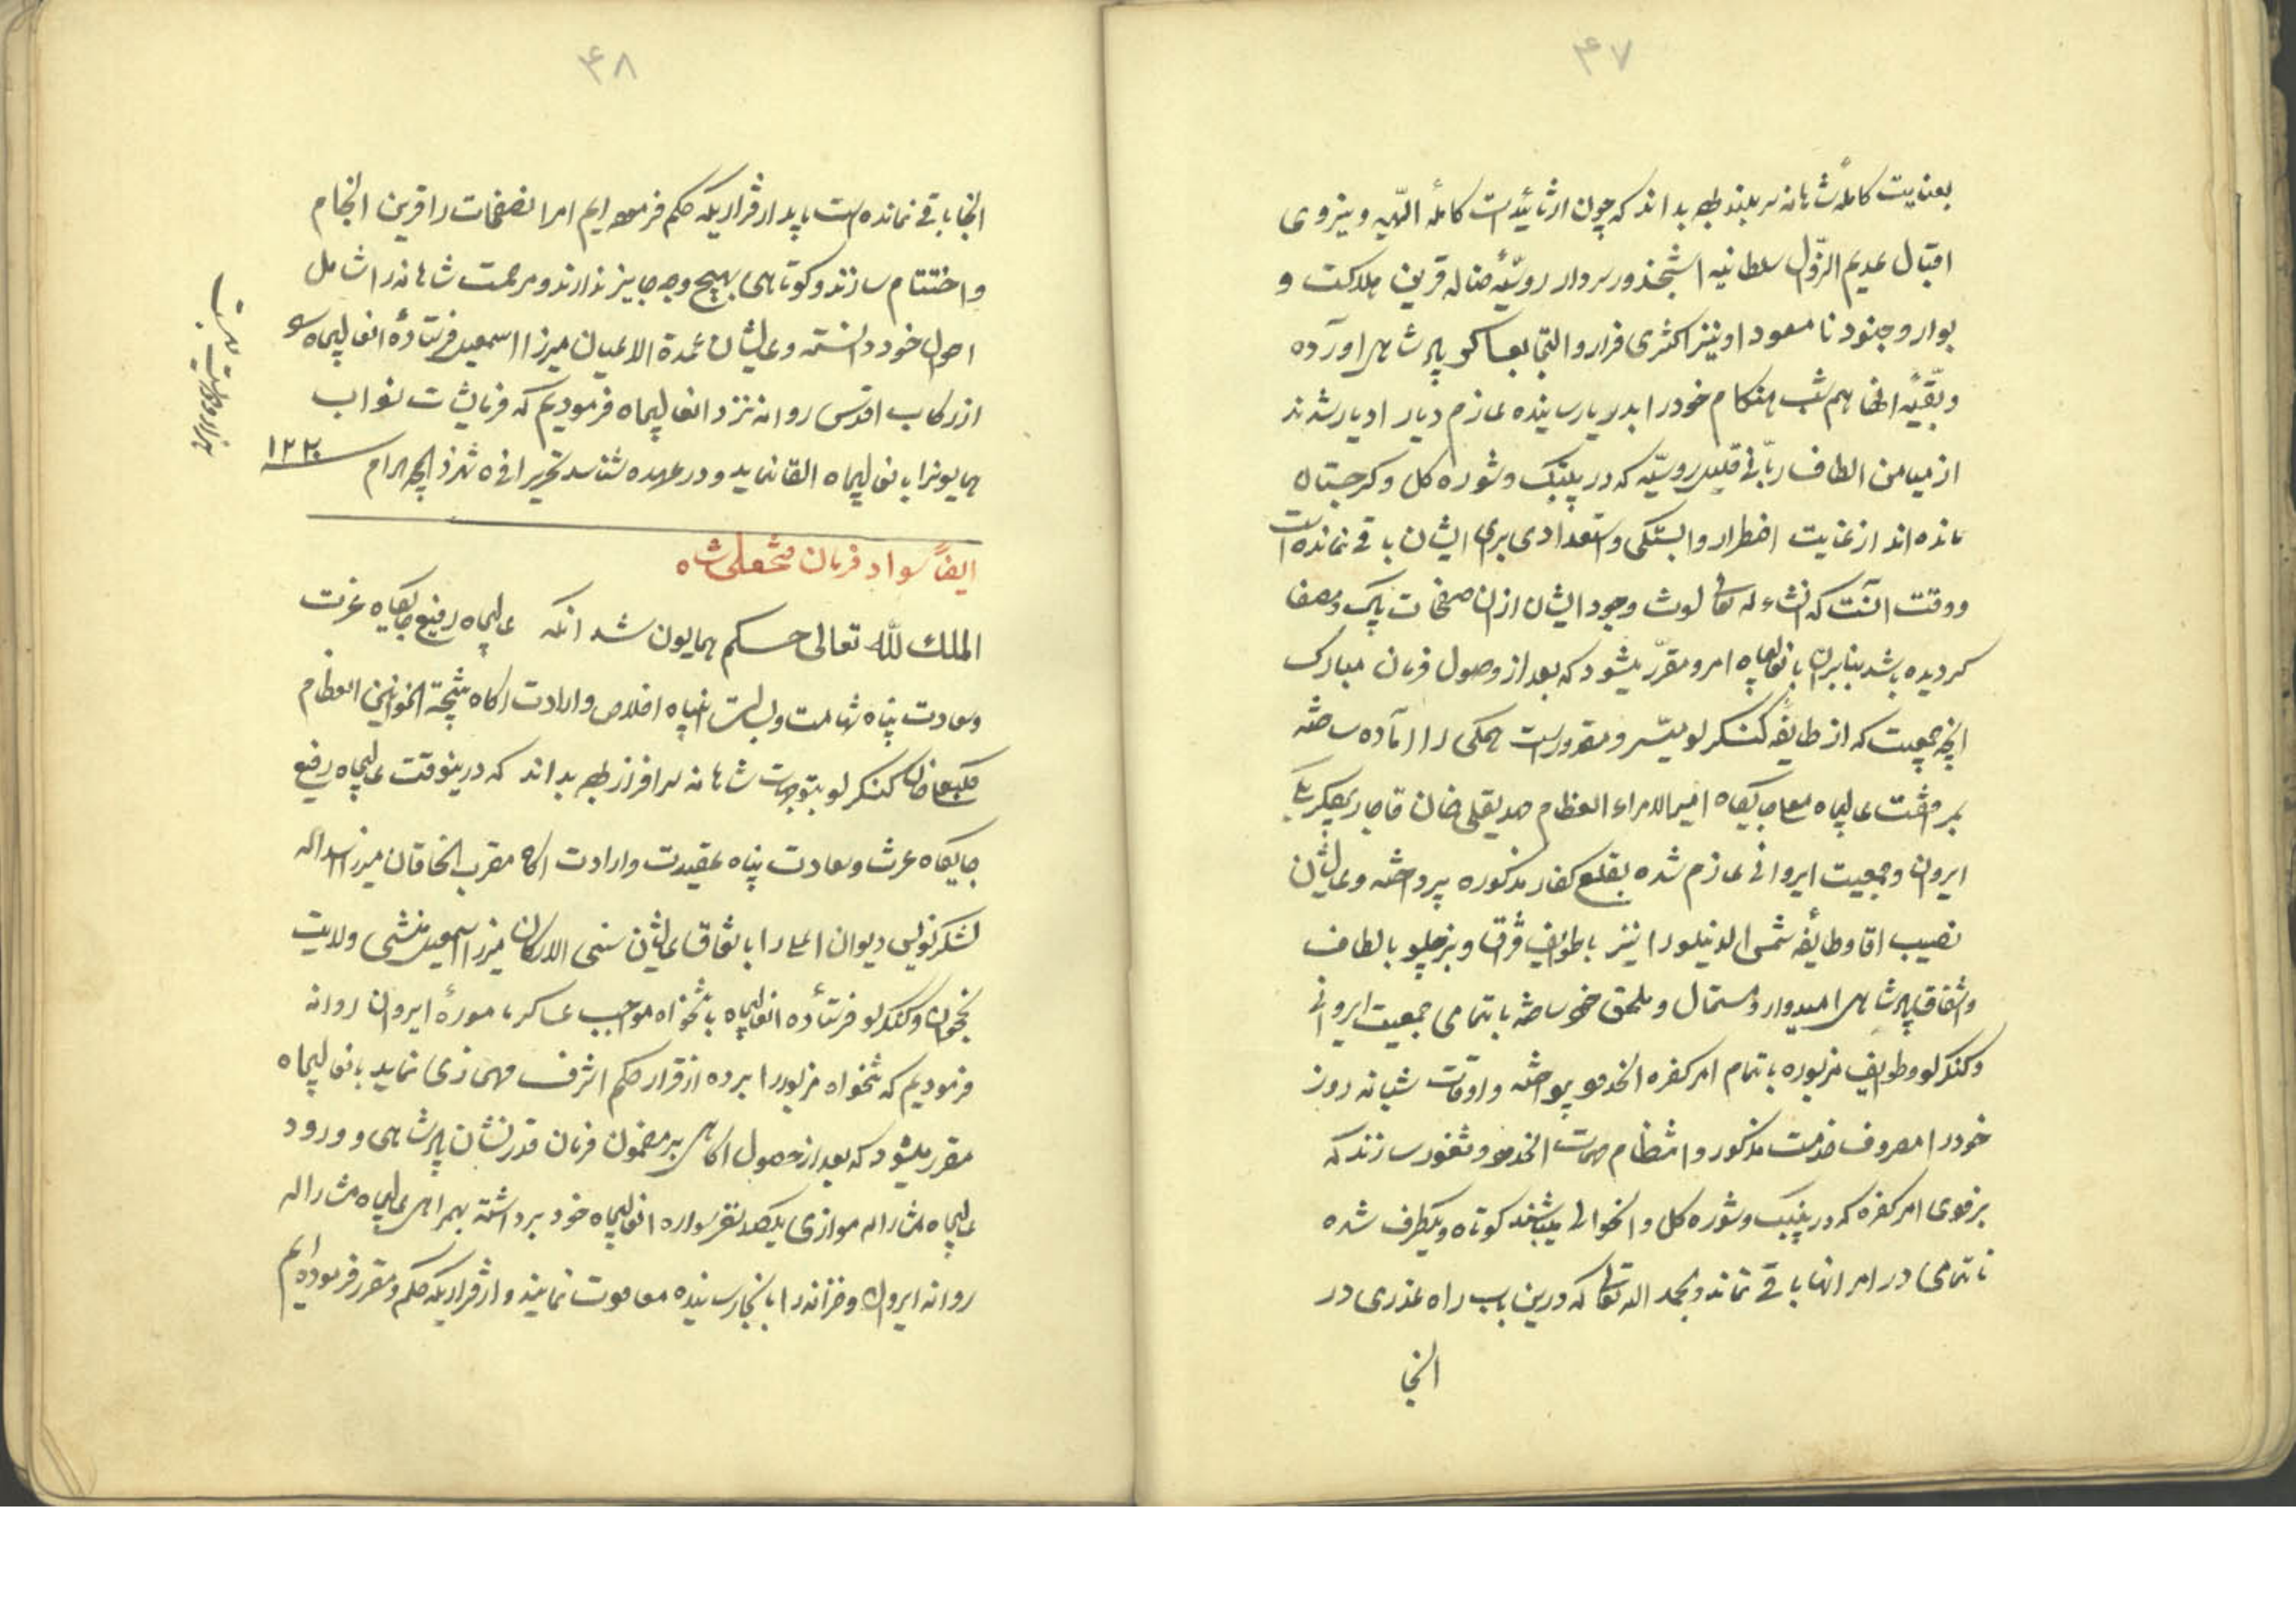 ۴۷
بعنایت کاملهٔ شاهانه سربلند بوده بداند که چون از تأییدات کاملهٔ الهیه و نیروی
اقبال عدیم الزوال سلطانیه اشپخدور سردار روسیّهٔ ضاله قرین هلاکت و
بوار و جنود نامسعود او نیز اکثری فرار و التجا بعساکر پادشاهی آورده
و بقیّه انها هم شب هنکام خود را بدریا رسانیده عازم دیار ادبار شدند
از میامن الطاف ربّانی قلیل روسیّه که در پنبک و شوره کل و کرجستان
مانده اند از غایت اضطرار و استعدادی برای ایشان باقی نمانده است
و وقت آنست که انشاء الله تعالی لوث وجود ایشان از ان صفحات پاک و مصفا
کردیده باشد بنابران بانعالیجاه امر و مقرّر میشود که بعد از وصول فرمان مبارک
انچه جمعیت که از طایفه کنکرلو میسّر و مقدور است همکی را آماده ساخته
بمرافقت عالیجاه معلی جایکاه امیرالامراء العظام مهدیقلی خان قاجار بیکلربیکی
ایروان و جمعیت ایروانی عازم شده بقلع کفار مذکوره پرداخته و عالیشان
نصیب اقا و طایفه شمس الدینلو را نیز با طوایف قزاق و بزچلو بالطاف
و اشفاق پادشاهی امیدوار و مستمال و ملحق خود ساخته با تمامی جمعیت ایروانی
و کنکرلو و طوایف مزبوره باتمام امر کفره انحدود پرداخته و اوقات شبانه روز
خود را مصروف خدمت مذکور و انتظام مهمات انحدود و ثغور سازند که
بزودی امر کفره که در پنبک و شوره کل و انحوالی میباشند کوتاه و یکطرف شده
ناتمامی در امر انها باقی نماند و بحمد الله تعالی که درین باب راه عذری در
انجا
۴۸
انجا باقی نمانده است باید از قراریکه حکم فرموده ایم امر انصفحات را قرین انجام
و اختتام سازند و کوتاهی بهیچ وجه جایز ندارند و مرحمت شاهانه را شامل
احوال خود دانسته و عالیشان عمدة الاعیان میرزا اسمعیل فرستادهٔ انعالیجاه را
از رکاب اقدس روانه نزد انعالیجاه فرمودیم که فرمایشات نواب
همایونرا بانعالیجاه القا نماید و در عهده شناسد تحریرا فی شهر ذیحجة الحرام
۱۲۲۰
ایضاً سواد فرمان فتحعلی شاه
الملك لله تعالی حکم همایون شد انکه عالیجاه رفیع جایکاه عزت
و سعادت پناه شهامت و بسالت انتباه اخلاص و ارادت اکاه نتیجة الخوانین العظام
کلبعلی خان کنکرلو بتوجهات شاهانه سرافراز بوده بداند که درینوقت عالیجاه رفیع
جایکاه عزت و سعادت پناه عقیدت و ارادت اکاه مقرب الخاقان میرزا اسدالله
لشکرنویس دیوان اعلی را باتفاق عالیشان سنی الارکان میرزا اسمعیل منشی ولایت
نخجوان و کنکرلو فرستاده انعالیجاه با تنخواه مواجب عساکر مامورهٔ ایروان روانه
فرمودیم که تنخواه مزبور را برده از قرار حکم اشرف مهمسازی نماید بانعالیجاه
مقرر میشود که بعد از حصول اکاهی بر مضمون فرمان قدر نشان پادشاهی و ورود
عالیجاه مشارالیه موازی یکصد نفر سواره انعالیجاه خود برداشته بهمراهی عالیجاه مشارالیه
روانه ایروان و خزانه را بانجا رسانیده معاودت نمایند و از قراریکه حکم و مقرر فرموده ایم